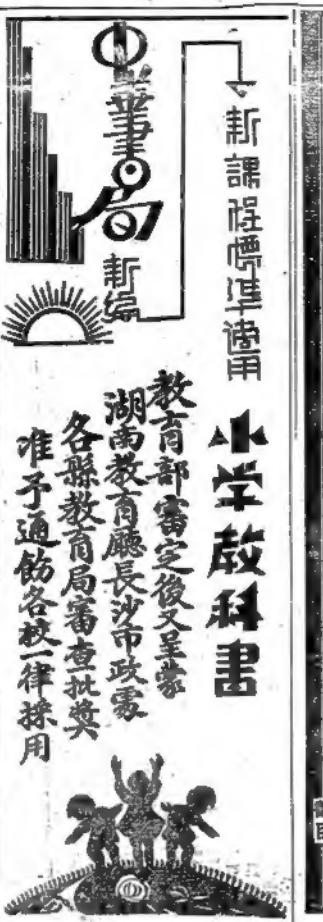 中華書局
新編
新課程標準適用
小学教科書
教育部審定後又呈蒙
湖南教育廳長沙市政處
各縣教育局審查批獎
准予通飭各校一律採用